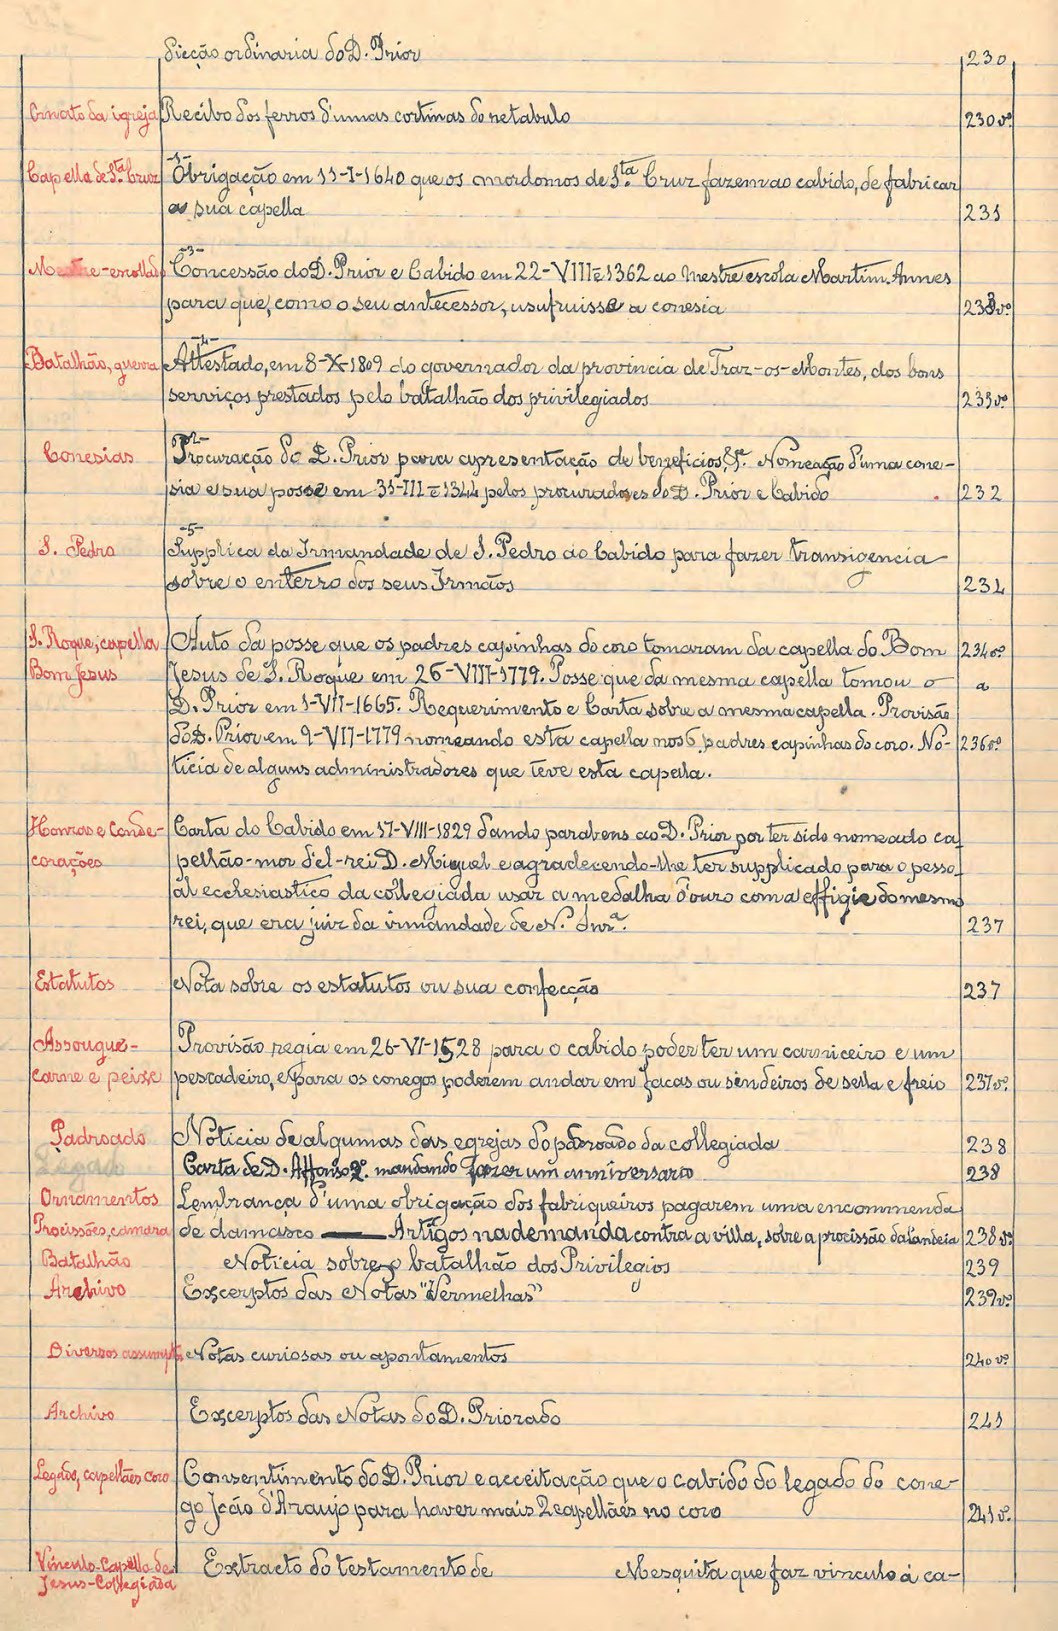 dicção ordinaria do D. Prior 230
Ornato da igreja Recibo dos ferros d'umas cortinas do retabulo 230 vº
-1-
Capella de S.ta Cruz Obrigação em 11-I-1640 que os mordomos de S.ta Cruz fazem ao cabido, de fabricar
a sua capella 231
-3-
Mestre-escollado Concessão do D. Prior e Cabido em 22-VIII-E1362 ao mestre escola Martim Annes
para que, como o seu antecessor, usufruisse a conesia 233vº
-4-
Batalhão, guerra Attestado, em 8-X-1809 do governador da provincia de Traz-os-Montes, dos bons
serviços prestados pelo batalhão dos privilegiados 233vº
-2-
Conesias Procuração do D. Prior para apresentação de beneficios, &ª. Nomeação d'uma cone-
sia e sua posse em 31-III-E1344 pelos procuradores do D. Prior e Cabido 232
-5-
S. Pedro Supplica da Irmandade de S. Pedro ao Cabido para fazer transigencia
sobre o enterro dos seus Irmãos 234
S. Roque, capella Auto da posse que os padres capinhas do coro tomaram da capella do Bom 234vº
Bom Jesus Jesus de S. Roque em 26-VIII-1779. Posse que da mesma capella tomou o a
D. Prior em 1-VII-1665. Requerimento e Carta sobre a mesma capella. Provisão
do D. Prior em 9-VII-1779 nomeando esta capella nos 6 padres capinhas do coro. No- 236vº
ticia de alguns administradores que teve esta capella.
Honras e conde- Carta do Cabido em 17-VIII-1829 dando parabens ao D. Prior por ter sido nomeado ca
corações pellão-mor d'el-rei D. Miguel e agradecendo-lhe ter supplicado para o pesso
al ecclesiastico da collegiada usar a medalha d'ouro com a effigie do mesmo
rei, que era juiz da irmandade de N.ª Snr.ª 237
Estatutos Nota sobre os estatutos ou sua confecção 237
Assougue- Provisão regia em 26-VI-1528 para o cabido poder ter um carniceiro e um
carne e peixe pescadeiro, e para os conegos poderem andar em facas ou sendeiros de sella e freio 237vº
Padroado Noticia de algumas das egrejas do padroado da collegiada 238
Legado Carta de D. Affonso 2º. mandando fazer um anniversario 238
Ornamentos Lembrança d'uma obrigação dos fabriqueiros pagarem uma encommenda
Procissões, camara de damasco — Artigos na demanda contra a villa, sobre a procissão da Candeia 238 vº
Batalhão Noticia sobre o batalhão dos Privilegios 239
Archivo Excerptos das Notas "Vermelhas" 239vº
Diversos assumptos Notas curiosas ou apontamentos 240 vº
Archivo Excerptos das Notas do D. Priorado 241
Legado, capellães coro Consentimento do D. Prior e acceitação que o cabido do legado do cone-
go João d'Araujo para haver mais 2 capellães no coro 241 vº
Vinculo-Capella de Extracto do testamento de Mesquita que faz vinculo á ca-
Jesus-Collegiada